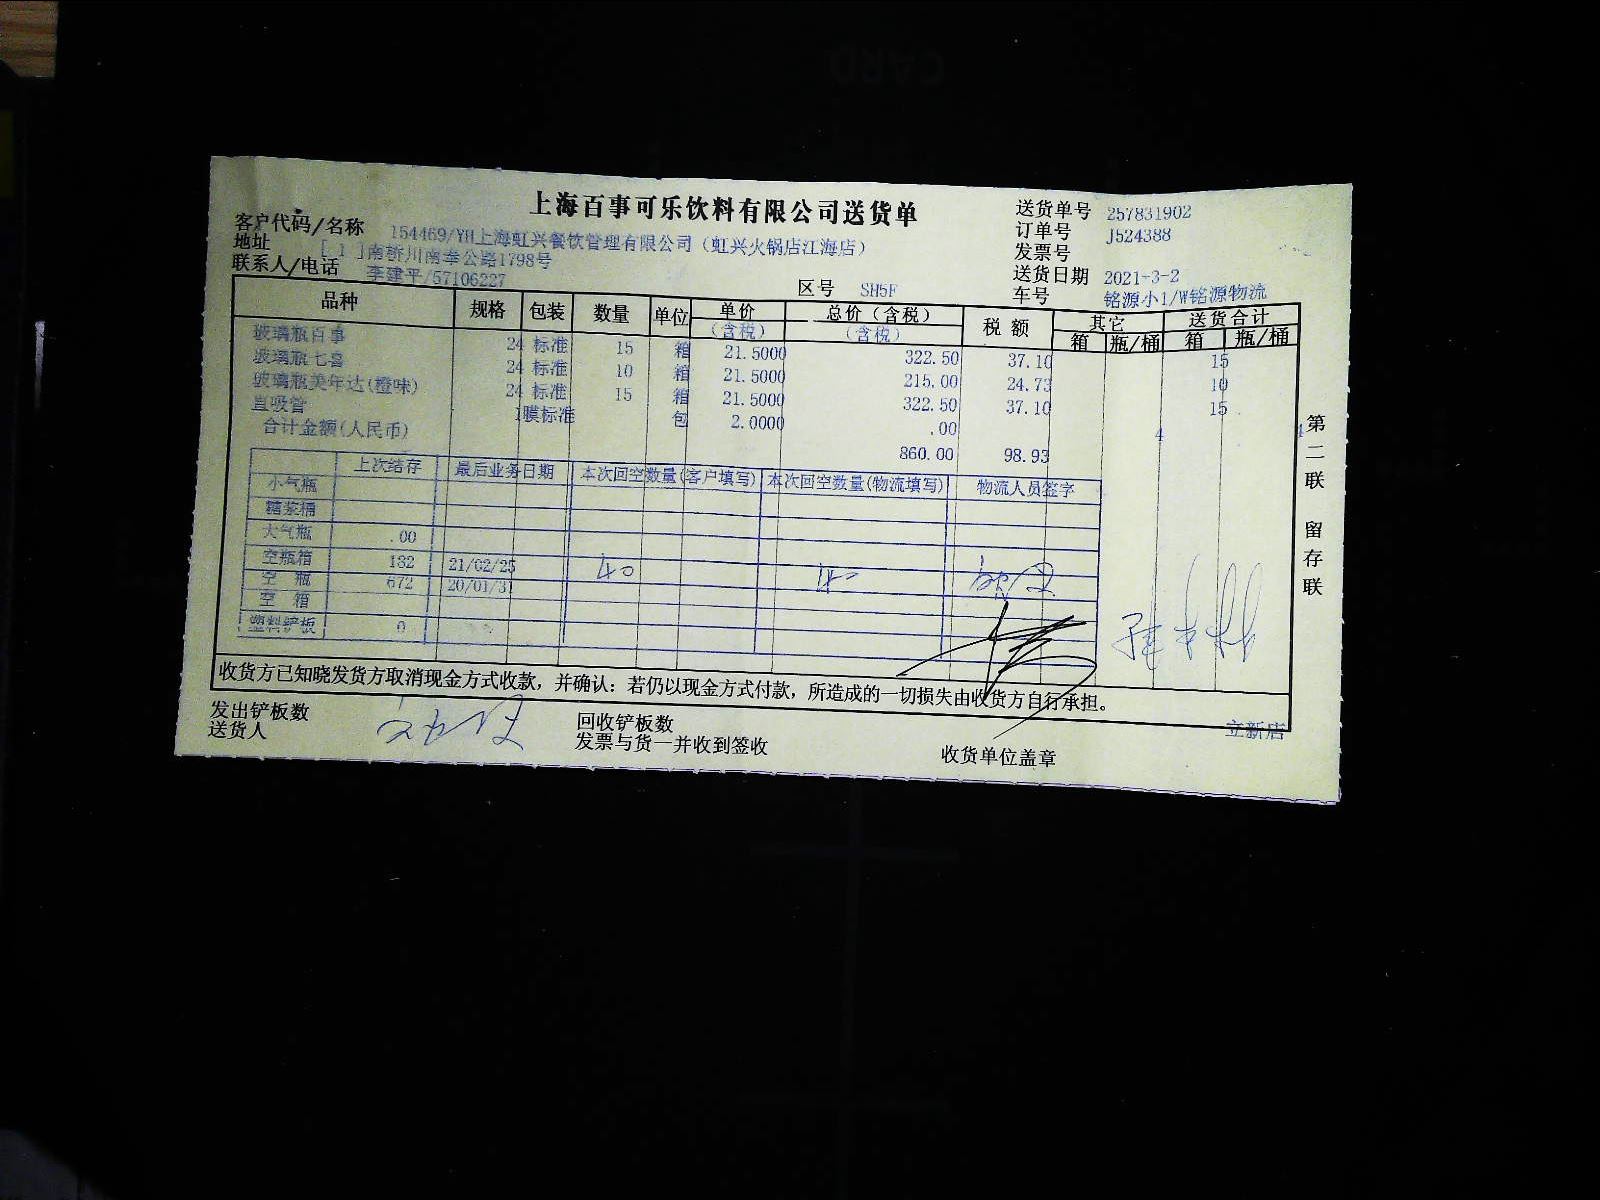 CARD
上海百事可乐饮料有限公司送货单
客户代码/名称 154469/YH上海虹兴餐饮管理有限公司（虹兴火锅店江海店）
地址 [ 1 ]南桥川南奉公路1798号
联系人/电话 李建平/57106227
区号 SH5F
送货单号 257831902
订单号 J524388
发票号
送货日期 2021-3-2
车号 铭源小1/W铭源物流
品种 规格 包装 数量 单位 单价（含税） 总价（含税）（含税） 税额 其它 送货合计
箱 瓶/桶 箱 瓶/桶
玻璃瓶百事 24 标准 15 箱 21.5000 322.50 37.10 15
玻璃瓶七喜 24 标准 10 箱 21.5000 215.00 24.73 10
玻璃瓶美年达(橙味) 24 标准 15 箱 21.5000 322.50 37.10 15
直吸管 1膜标准 包 2.0000 .00 4 4
合计金额(人民币) 860.00 98.93
上次结存 最后业务日期 本次回空数量(客户填写) 本次回空数量(物流填写) 物流人员签字
小气瓶
糖浆桶
大气瓶 .00
空瓶箱 132 21/02/25 40 40
空 瓶 672 20/01/31
空 箱
塑料铲板 0
收货方已知晓发货方取消现金方式收款，并确认：若仍以现金方式付款，所造成的一切损失由收货方自行承担。
发出铲板数 回收铲板数
送货人 发票与货一并收到签收 收货单位盖章
立新店
第二联 留存联